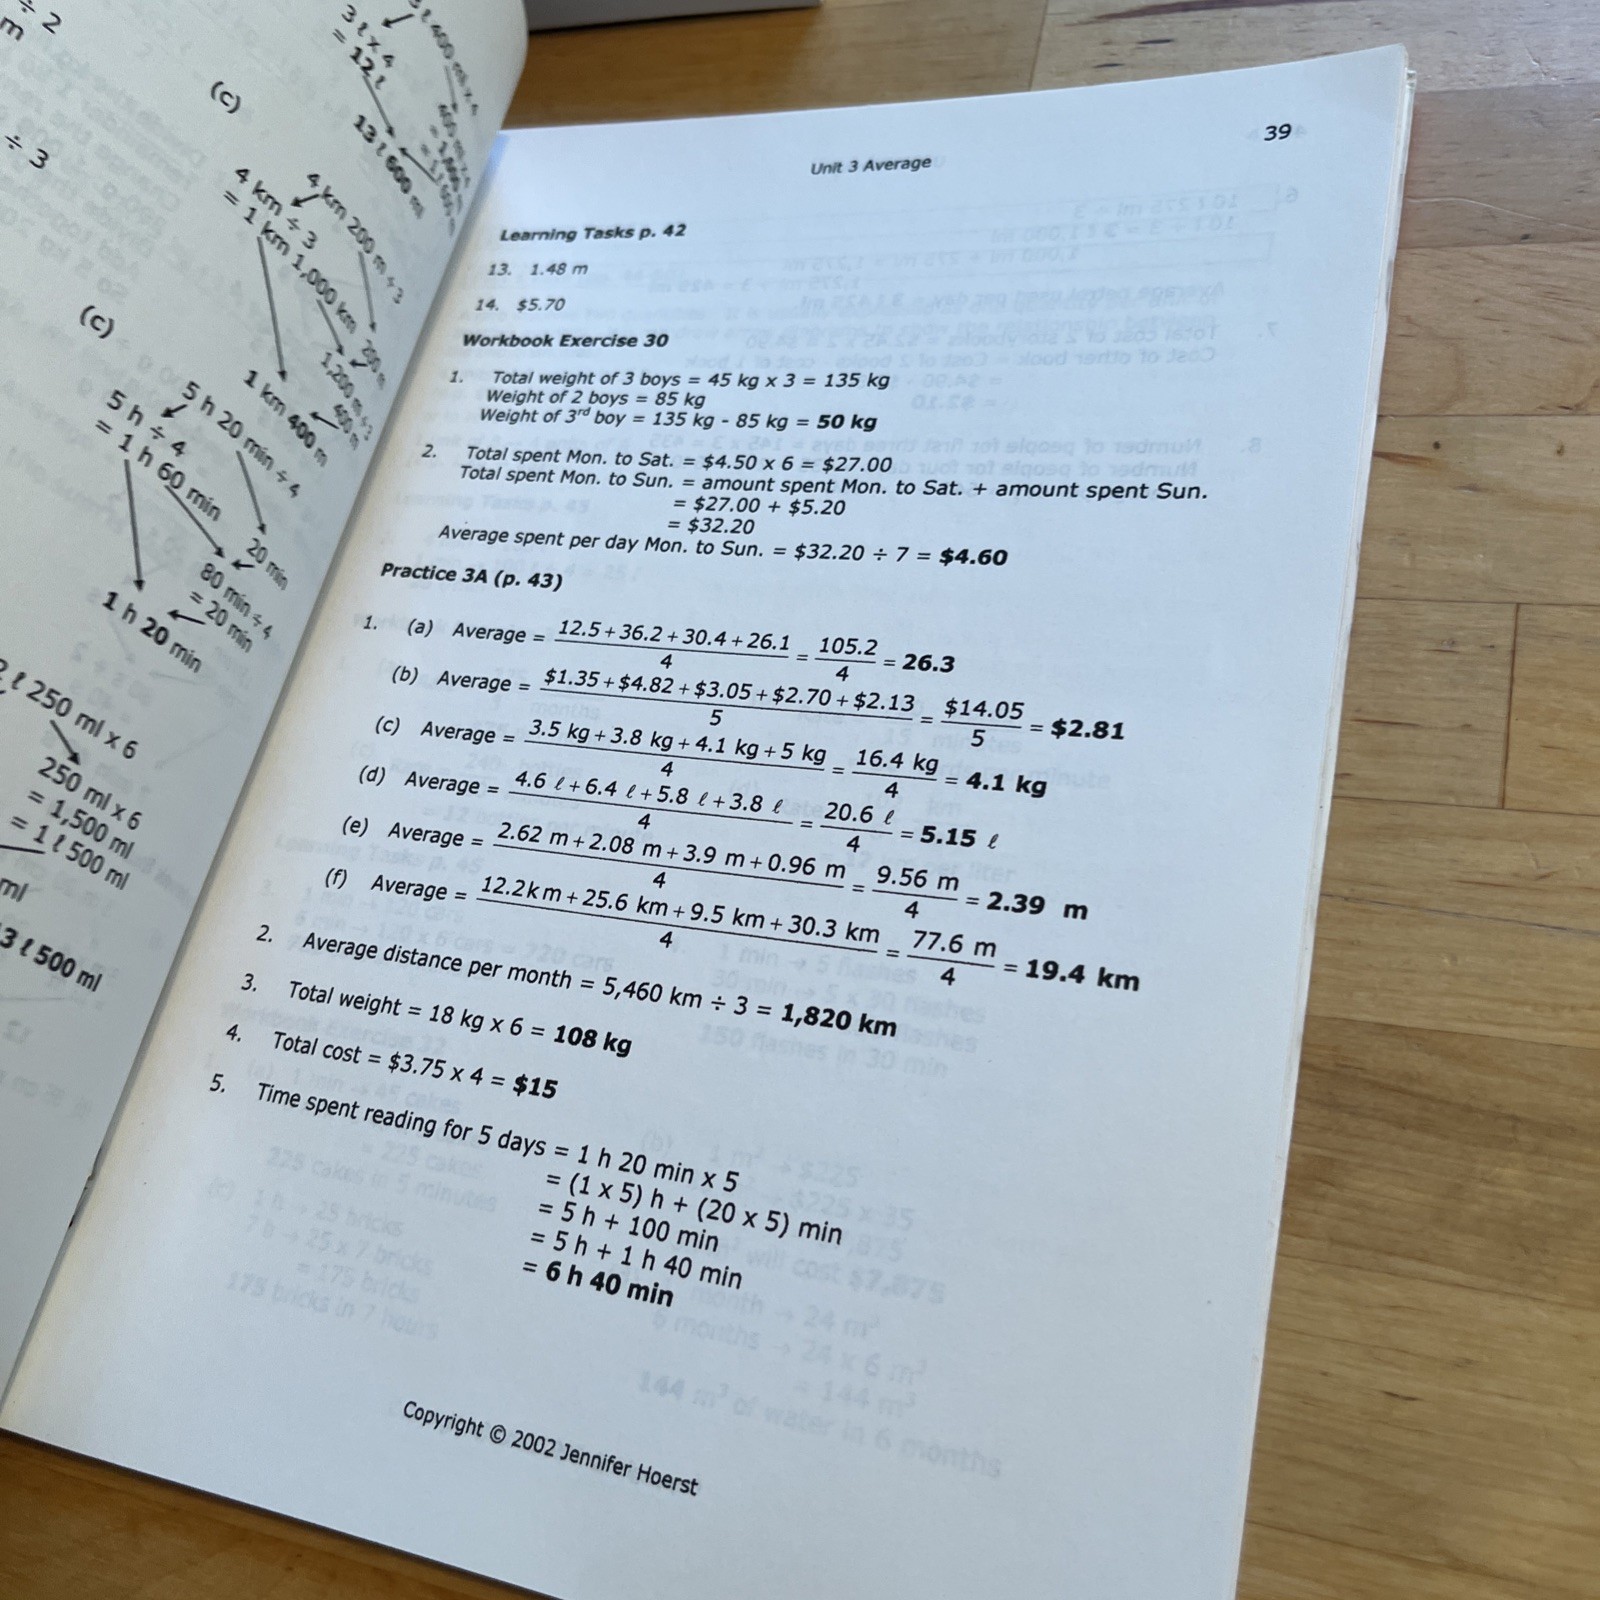 ÷ 2
m
÷ 3
(c)
3 ℓ x 4
= 12 ℓ
13 ℓ 600 ml
(c)
4 km 200 m ÷ 3
4 km ÷ 3
= 1 km 1,000 km
200 m
1,200 m ÷ 3
400 m
1 km 400 m
5 h 20 min ÷ 4
5 h ÷ 4
= 1 h 60 min
20 min
80 min ÷ 4
= 20 min
1 h 20 min
ℓ 250 ml x 6
250 ml x 6
= 1,500 ml
= 1 ℓ 500 ml
ml
3 ℓ 500 ml
39
Unit 3 Average
Learning Tasks p. 42
13. 1.48 m
14. $5.70
Workbook Exercise 30
1. Total weight of 3 boys = 45 kg x 3 = 135 kg
Weight of 2 boys = 85 kg
Weight of 3rd boy = 135 kg - 85 kg = 50 kg
2. Total spent Mon. to Sat. = $4.50 x 6 = $27.00
Total spent Mon. to Sun. = amount spent Mon. to Sat. + amount spent Sun.
= $27.00 + $5.20
= $32.20
Average spent per day Mon. to Sun. = $32.20 ÷ 7 = $4.60
Practice 3A (p. 43)
1. (a) Average = 12.5+36.2+30.4+26.1/4 = 105.2/4 = 26.3
(b) Average = $1.35+$4.82+$3.05+$2.70+$2.13/5 = $14.05/5 = $2.81
(c) Average = 3.5 kg+3.8 kg+4.1 kg+5 kg/4 = 16.4 kg/4 = 4.1 kg
(d) Average = 4.6 ℓ+6.4 ℓ+5.8 ℓ+3.8 ℓ/4 = 20.6 ℓ/4 = 5.15 ℓ
(e) Average = 2.62 m+2.08 m+3.9 m+0.96 m/4 = 9.56 m/4 = 2.39 m
(f) Average = 12.2km+25.6 km+9.5 km+30.3 km/4 = 77.6 m/4 = 19.4 km
2. Average distance per month = 5,460 km ÷ 3 = 1,820 km
3. Total weight = 18 kg x 6 = 108 kg
4. Total cost = $3.75 x 4 = $15
5. Time spent reading for 5 days = 1 h 20 min x 5
= (1 x 5) h + (20 x 5) min
= 5 h + 100 min
= 5 h + 1 h 40 min
= 6 h 40 min
Copyright © 2002 Jennifer Hoerst